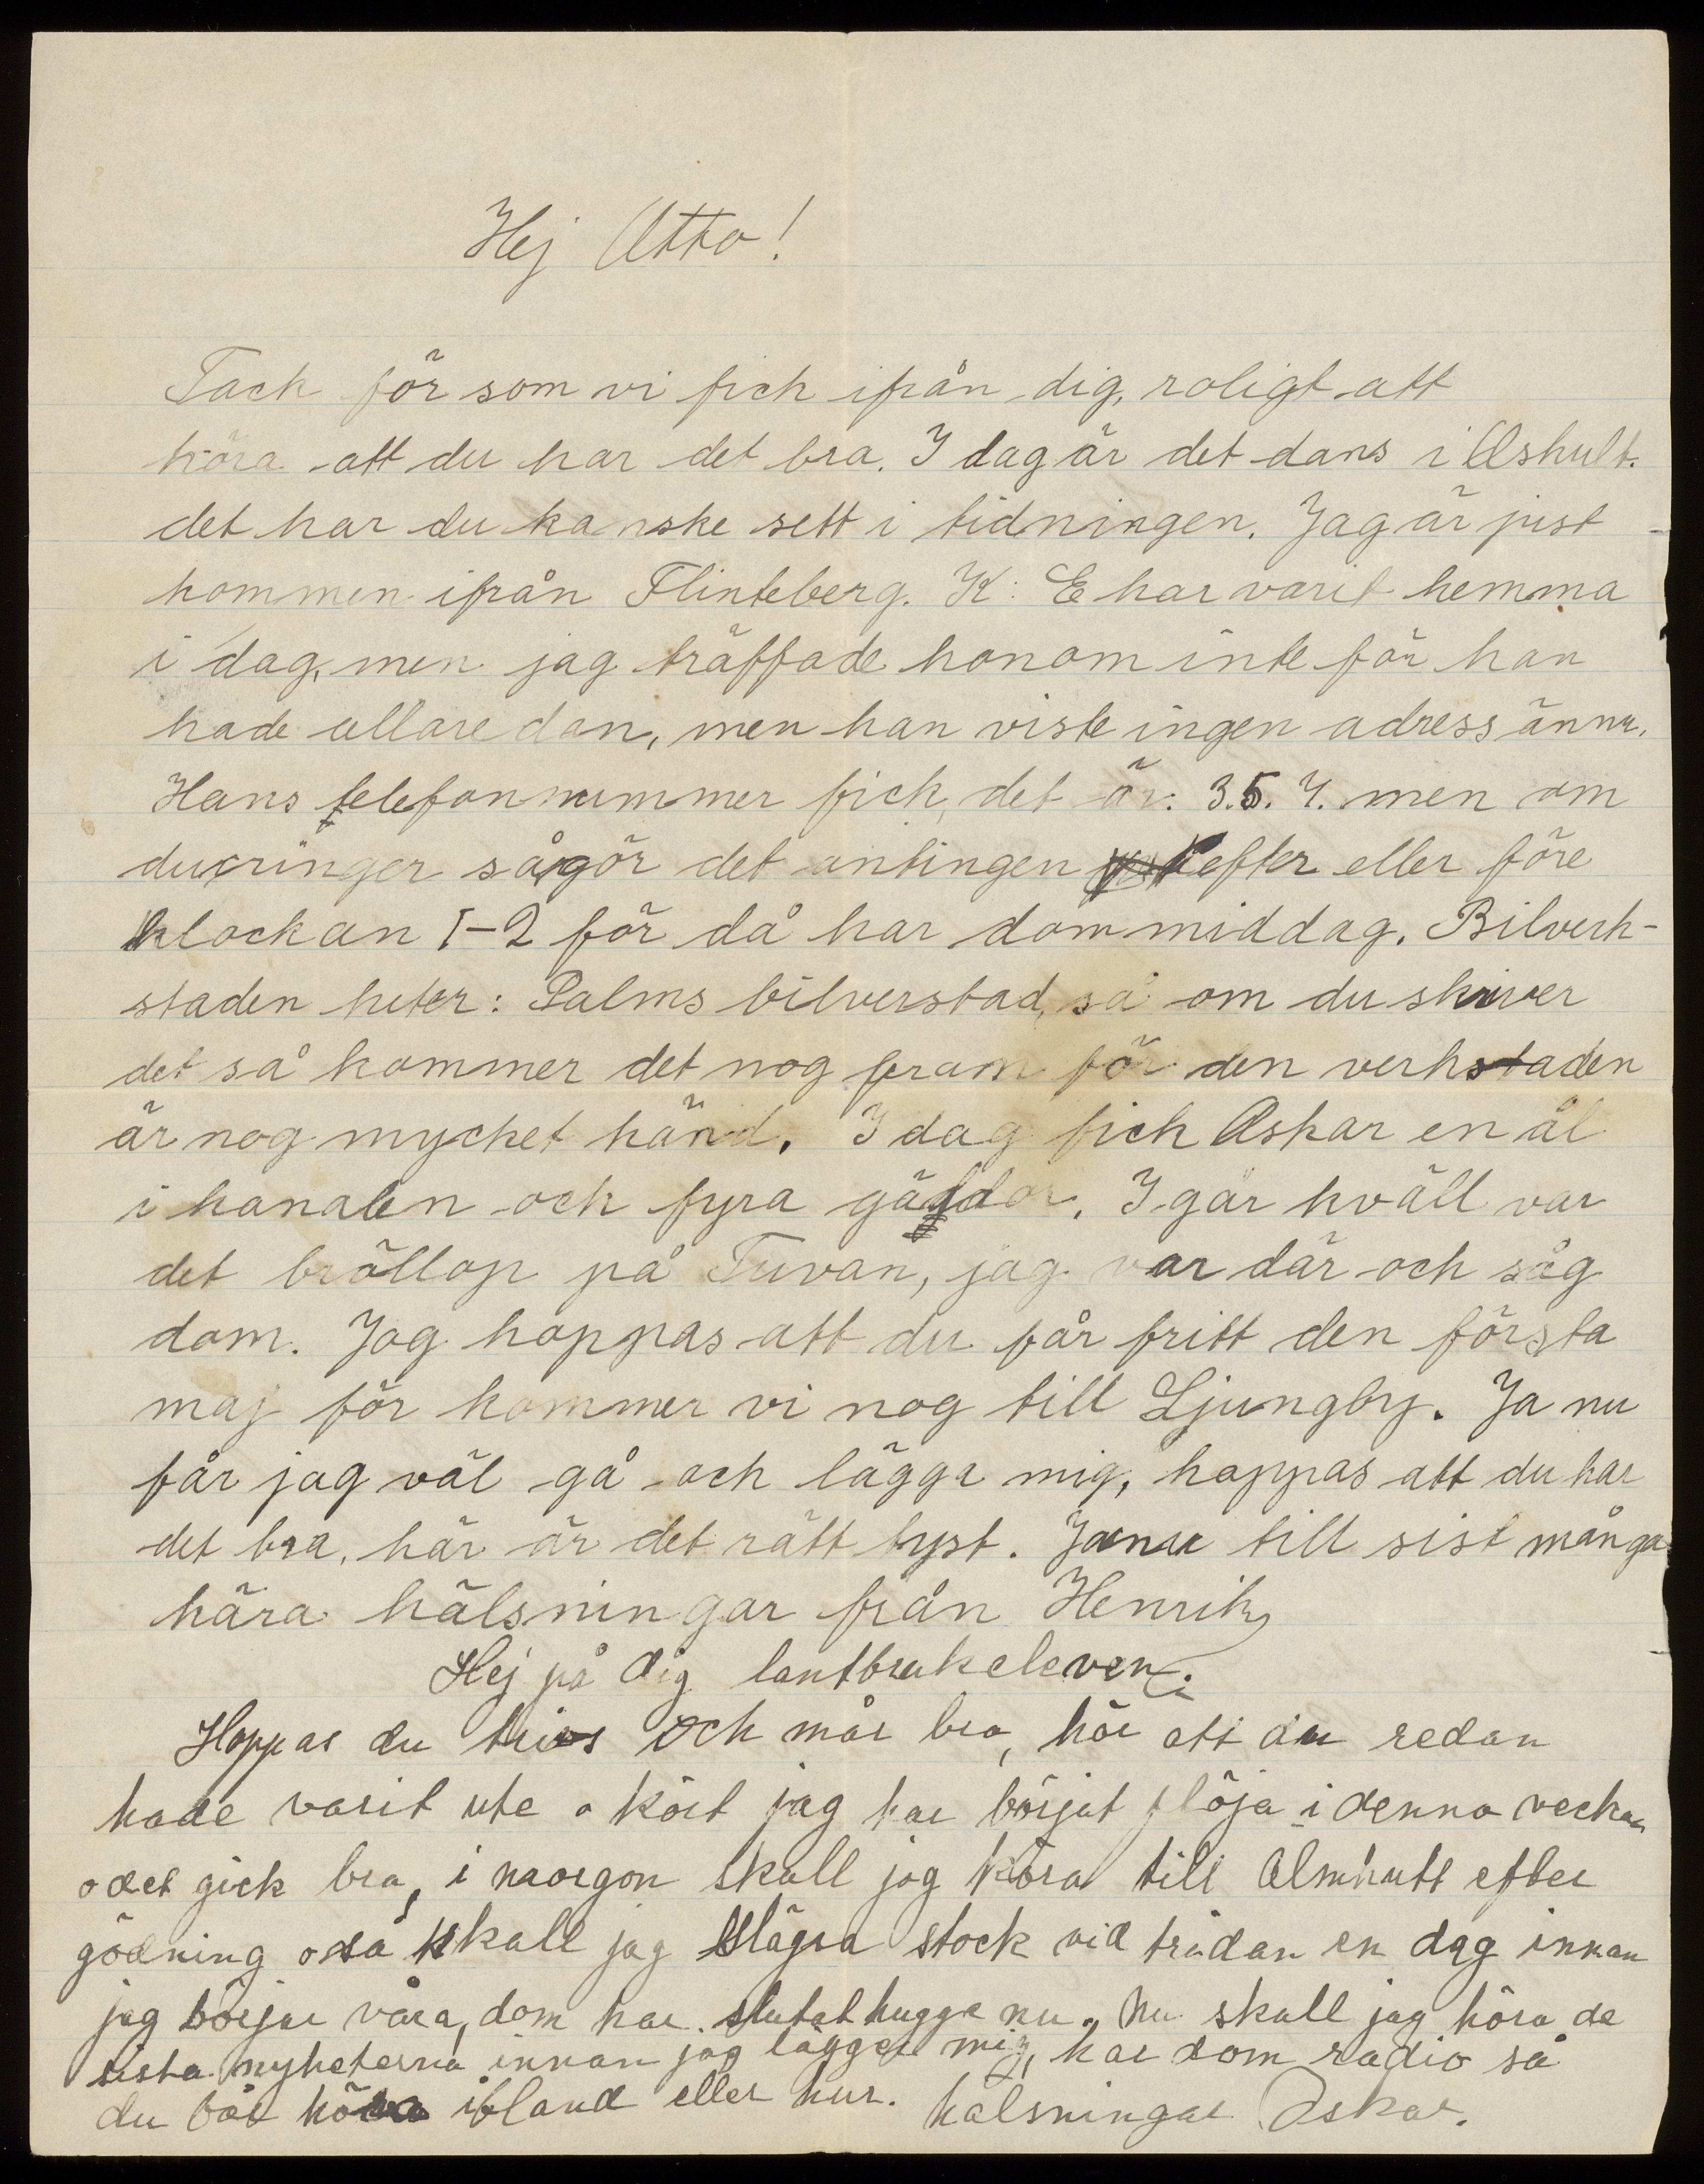 Hej Otto!
Tack för som vi fick ifrån dig, roligt att
höra att du har det bra. I dag är det dans i Ashult.
det har du kanske sett i tidningen. Jag är just
kommen ifrån Flinteberg. K: E har varit hemma
i dag, men jag träffade honom inte för han
hade allare dan, men han viste ingen adress ännu.
Hans telefonnummer fick, det är: 3.5.4. men om
du ringer så gör det antingen efter eller före
klockan 1-2 för då har dom middag. Bilverk-
staden heter: Palms bilverstad, så om du skriver
det så kommer det nog fram för den verkstaden
är nog mycket känd. I dag fick Oskar en ål
i kanalen och fyra gäddor. I går kväll var
det bröllop på Tuvan, jag var där och såg
dom. Jag hoppas att du får fritt den första
maj för kommer vi nog till Ljungby. Ja nu
får jag väl gå och lägga mig, hoppas att du har
det bra, här är det rätt tyst. Ja nu till sist många
kära hälsningar från Henrik
Hej på dig lantbrukeleven.
Hoppas du trivs och mår bra, hör att du redan
hade varit ute o kört jag har börjat plöja i denna veckan
o det gick bra, i morgon skall jag köra till Älmhult efter
gödning o så skall jag slägra stock vid trådan en dag innan
jag börjar våra, dom har slutat hugga nu. Nu skall jag höra de
sista nyheterna innan jag lägger mig, har dom radio så
du får höra ibland eller hur. hälsningar Oskar.